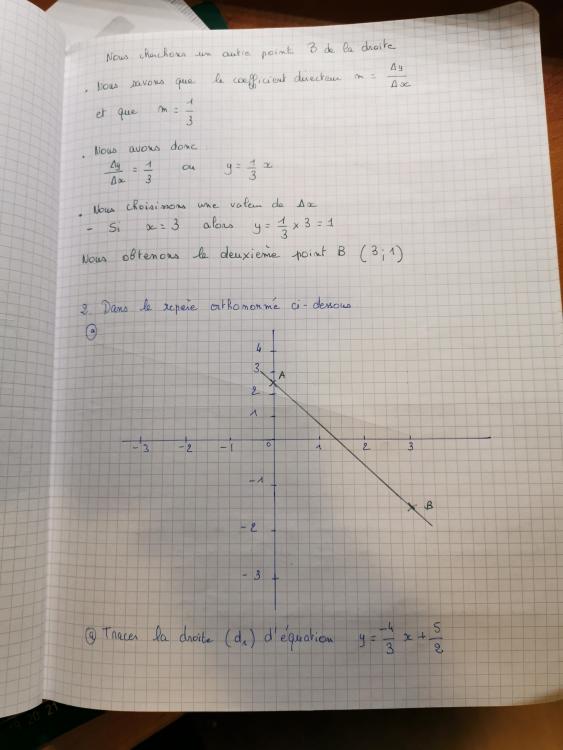 Nous cherchons un autre point B de la droite
. Nous savons que le coefficient directeur m = Δy/Δx
et que m = 1/3
. Nous avons donc
Δy/Δx = 1/3 ou y = 1/3 x
. Nous choisissons une valeur de Δx
- Si x = 3 alors y = 1/3 × 3 = 1
Nous obtenons le deuxième point B (3 ; 1)
2. Dans le repère orthonormé ci-dessous
a
4
3 A
2
1
-3 -2 -1 0 1 2 3
-1
B
-2
-3
a Tracer la droite (d1) d'équation y = -4/3 x + 5/2
20 21